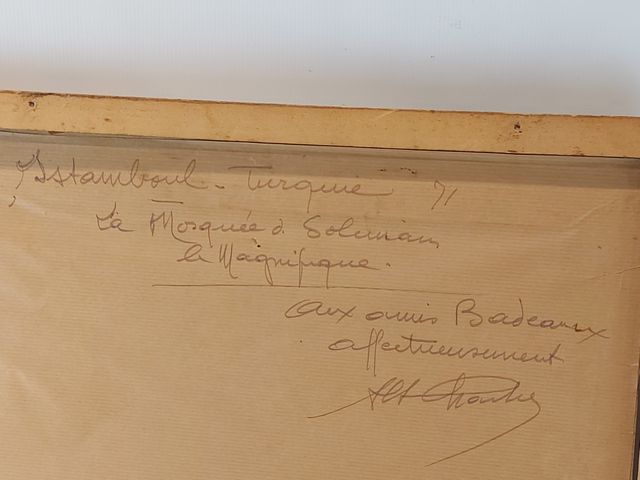 Istamboul - Turquie 71
La Mosquée d. Soliman
le Magnifique.
aux amis Badeaux
affectueusement